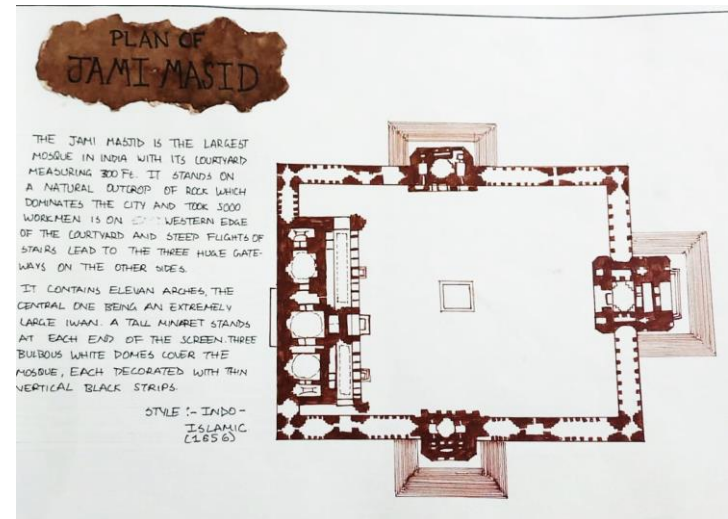 PLAN OF
JAMI MASJID
THE JAMI MASJID IS THE LARGEST
MOSQUE IN INDIA WITH ITS COURTYARD
MEASURING 300 Ft. IT STANDS ON
A NATURAL OUTCROP OF ROCK WHICH
DOMINATES THE CITY AND TOOK 5000
WORKMEN IS ON WESTERN EDGE
OF THE COURTYARD AND STEEP FLIGHTS OF
STAIRS LEAD TO THE THREE HUGE GATE-
WAYS ON THE OTHER SIDES.
IT CONTAINS ELEVAN ARCHES, THE
CENTRAL ONE BEING AN EXTREMELY
LARGE IWAN. A TALL MINARET STANDS
AT EACH END OF THE SCREEN. THREE
BULBOUS WHITE DOMES COVER THE
MOSQUE, EACH DECORATED WITH THIN
VERTICAL BLACK STRIPS.
STYLE :- INDO-
ISLAMIC
(1656)